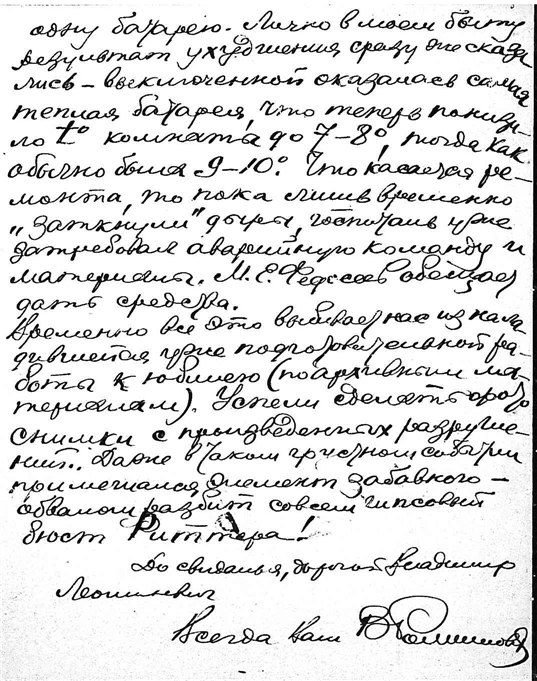 одну батарею. Лично в моем быту
результат ухудшения сразу же сказа
лись – выключенной оказалась самая
теплая батарея, что теперь понизи-
ло t° комнаты до 7–8°, тогда как
обычно было 9–10°. Что касается ре-
монта, то пока лишь временно
„заткнули" дыры, госпиталь уже
затребовал аварийную команду и
материалы. М. Е. обещает
дать средства.
Временно все это выбивает нас из нала
дившейся уже подготовительной ра-
боты к юбилею (по архивным ма-
териалам). Успели сделать фото
снимки с произведенных разруше-
ний. Даже в таком грустном событии
примешался элемент забавного –
обвалом разбит совсем гипсовый
бюст Риттера!
До свиданья, дорогой Владимир
Леонтьевич
Всегда Ваш